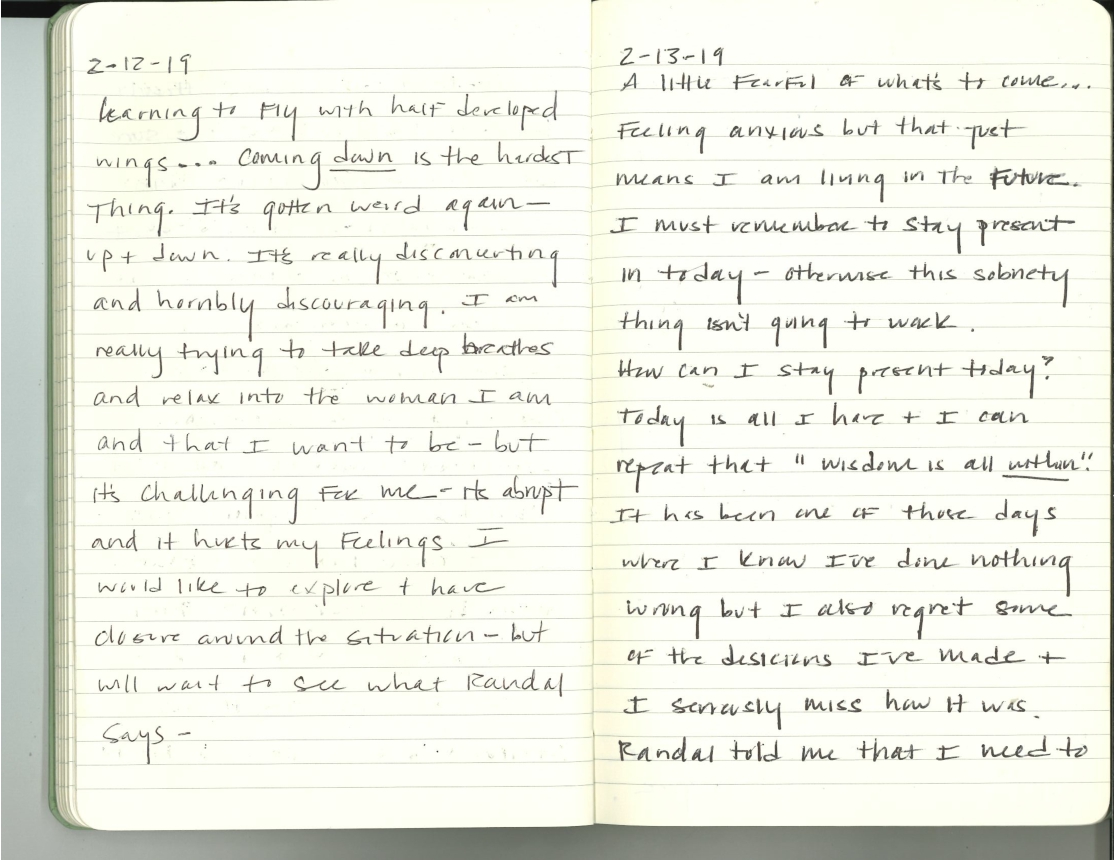 2-12-19
Learning to Fly with half developed
wings... Coming down is the hardest
Thing. It's gotten weird again—
up + down. It's really disconcerting
and horribly discouraging. I am
really trying to take deep breathes
and relax into the woman I am
and that I want to be - but
it's challenging For me - its abrupt
and it hurts my Feelings. I
would like to explore + have
closure around the situation - but
will wait to see what Randal
says -
2-13-19
A little Fearful of what's to come...
Feeling anxious but that just
means I am living in the Future.
I must remember to stay present
in today - otherwise this sobriety
thing isn't going to work.
How can I stay present today?
Today is all I have + I can
repeat that "wisdom is all within".
It has been one of those days
where I know I've done nothing
wrong but I also regret some
of the desicions I've made +
I seriously miss how it was.
Randal told me that I need to